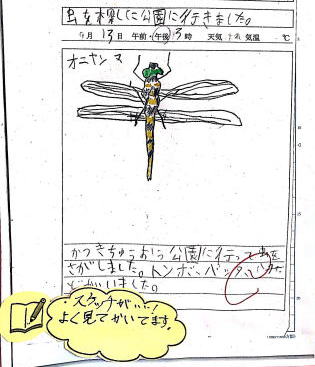 虫を探しに公園に行きました。
月 13日 午前・午後 3時 天気 気温 ℃
オニヤンマ
公園に行って虫を
さがしました。トンボ、バッタ、
どがいました。
・スケッチが、
よく見てかいてます。